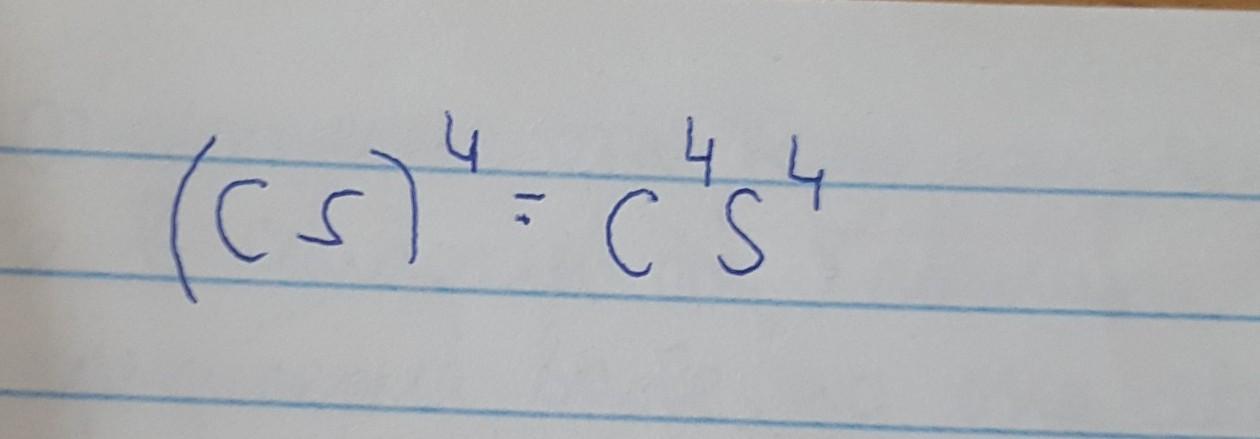 (CS)⁴ = C⁴S⁴